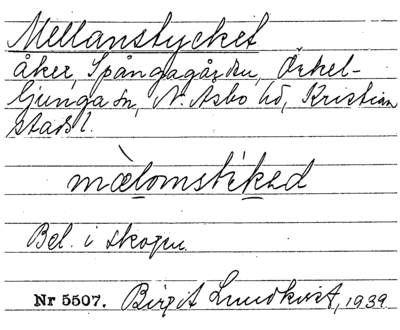 Mellanstycket
Åker, Spångagården, Örkel-
ljunga sn, N. Åsbo hd, Kristian
stads l.
mæ̀lomstìkəd
Bel. i skogen.
Nr 5507. Birgit Lundkvist, 1939